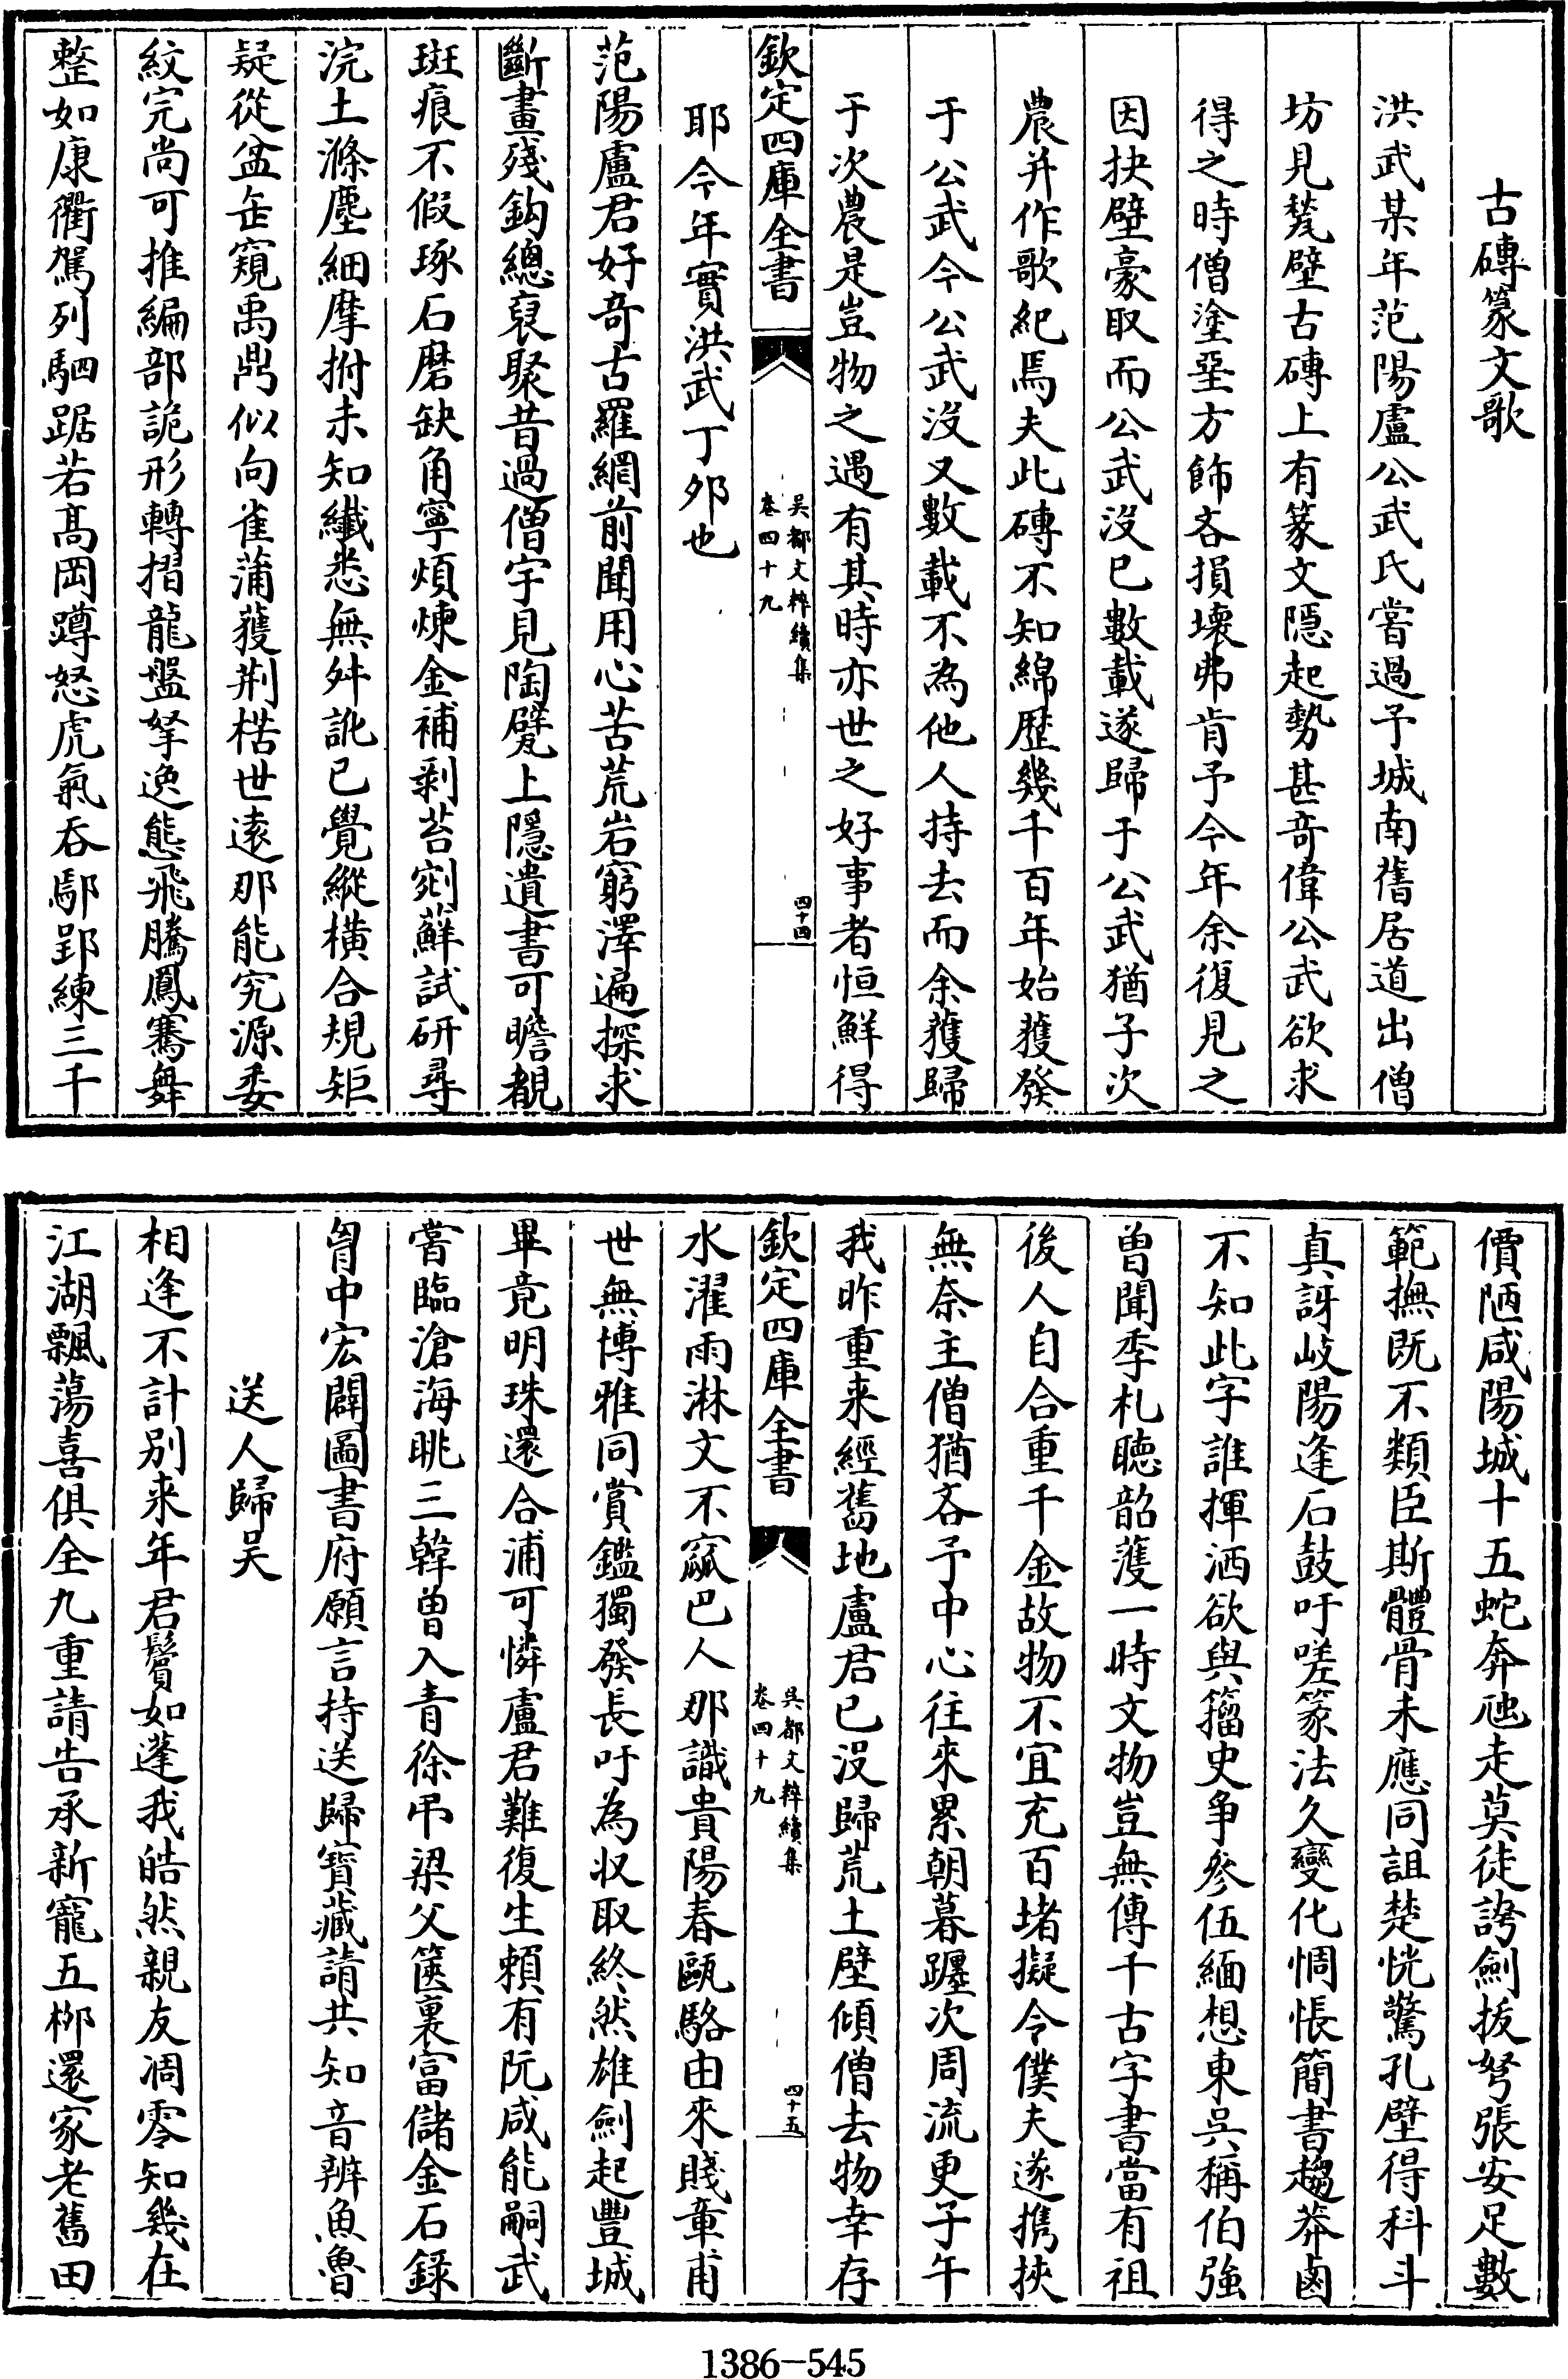 古磚篆文歌
洪武某年范陽盧公武氏嘗過予城南舊居道出僧
坊見甃壁古磚上有篆文隠起勢甚竒偉公武欲求
得之時僧塗堊方飾吝損壊弗肯予今年余復見之
因抉壁豪取而公武沒已數載遂歸于公武猶子次
農并作歌紀焉夫此磚不知綿歴幾千百年始獲發
于公武今公武沒又數載不為他人持去而余獲歸
于次農是豈物之遇有其時亦世之好事者恒鮮得
欽定四庫全書
吴都文粹續集
卷四十九
四十四
耶今年實洪武丁夘也
范陽盧君好竒古羅網前聞用心苦荒岩窮澤遍探求
斷畫殘鈎總裒聚昔過僧宇見陶甓上隱遺書可瞻覩
斑痕不假琢石磨缺角寧煩煉金補剥苔剜蘚試研尋
浣土滌塵細摩拊未知纎悉無舛訛已覺縱横合規矩
疑從盆缶窺禹鼎似向雀蒲獲荆楛世逺那能究源委
紋完尚可推編部詭形轉摺龍盤拏逸態飛騰鳳騫舞
整如康衢駕列駟踞若髙岡蹲怒虎氣吞鄢郢練三千
價陋咸陽城十五蛇奔虺走莫徒誇劍拔弩張安足數
範撫既不類臣斯體骨未應同詛楚恍驚孔壁得科斗
真訝岐陽逢石鼓吁嗟篆法久變化惆悵簡書趨莽鹵
不知此字誰揮洒欲與籀史争參伍緬想東吳稱伯強
曽聞季札聴韶頀一時文物豈無傳千古字書當有祖
後人自合重千金故物不宜充百堵擬令僕夫遂携挾
無奈主僧猶吝予中心往來累朝暮躔次周流更子午
我昨重来經舊地盧君已没歸荒土壁傾僧去物幸存
欽定四庫全書
吳都文粹續集
卷四十九
四十五
水濯雨淋文不窳巴人那識貴陽春甌駱由來賤章甫
世無博雅同賞鑑獨發長吁為収取終然雄劍起豐城
畢竟明珠還合浦可憐盧君難復生頼有阮咸能嗣武
嘗臨滄海眺三韓曽入青徐弔梁父篋裏富儲金石録
胷中宏闢圖書府願言持送歸寳藏請共知音辨魚魯
送人歸吴
相逢不計别来年君鬢如蓬我皓然親友凋零知幾在
江湖飄蕩喜俱全九重請告承新寵五柳還家老舊田
1386-545